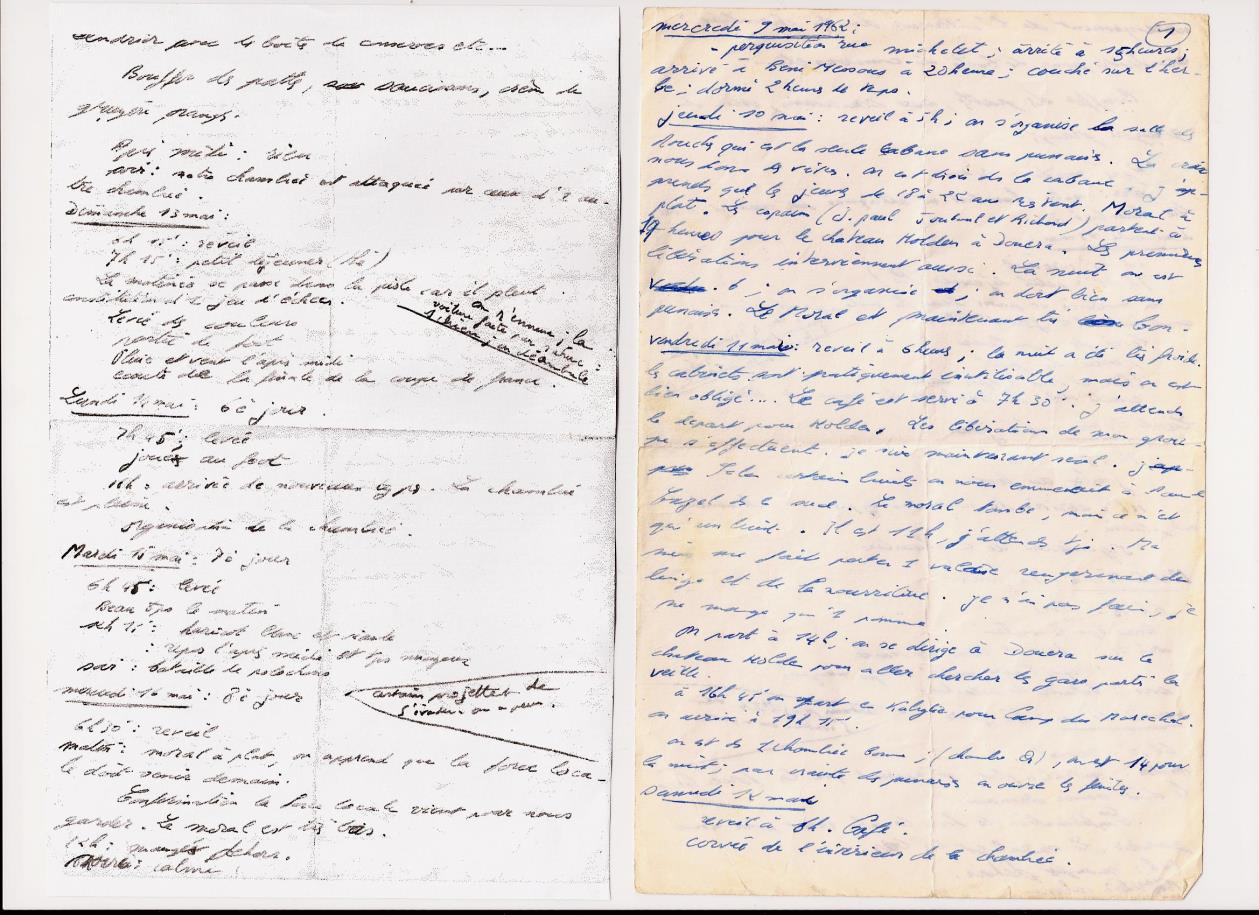 cendrier avec les boîtes de conserves etc...
Bouffer des pates, saucissons, crème de
gruyère oranges.
Après midi : rien
soir : notre chambrée est attaquée par ceux d'1 au-
tre chambrée.
Dimanche 13 mai :
6h 15' : reveil
7h 15' : petit déjeuner (thé)
La matinée se passe dans la piste car il pleut.
constitution d'1 jeu d'échecs.
on s'ennuie ; la
voiture faite
Levée des couleurs
partie de foot
Pluie et vent l'après midi
ecoute de la finale de la coupe de france.
Lundi 14 mai : 6è jour
7h 45' ; levée
joué au foot
16h : arrivée de nouveaux types. La chambrée
est pleine.
Organisation de la chambrée.
Mardi 15 mai : 7è jour
6h 45' : levée
Beau tps le matin
12h 15' : haricot blanc et viande
: repos l'après midi et tps nuageux
soir : bataille de polochons
mercredi 16 mai : 8è jour
certains projettent de
s'évader on a peur.
6h 30' : reveil
matin : moral à plat, on apprend que la force loca-
le doit venir demain.
Confirmation la force locale vient pour nous
garder. Le moral est très bas.
12h : mangé dehors.
calme
1
mercredi 9 mai 1962 :
- perquisition rue michelet ; arrêté à 15 heures ;
arrivé à Beni Messous à 20 heure ; couché sur l'her-
be ; dormi 2 heures de tps.
jeudi 10 mai : reveil à 5h ; on s'organise la salle des
douches qui est la seule cabane sans punaises. La
nous donne des vivres. on est trois de la cabane. j'ap-
prends que les jeunes de 18 à 22 ans restent. Moral à
plat. Les copains (J. paul et Richard) partent à
19 heures pour le chateau Holden à Douera. Les premières
libérations interviennent aussi. La nuit on est
6 ; on s'organise ; on dort bien sans
punaises. Le Moral est maintenant très bon.
vendredi 11 mai : reveil à 6 heures ; la nuit a été très froide.
les cabinets sont pratiquement inutilisable, mais on est
bien obligé... Le café est servi à 7h 30'. j'attends
le depart pour Holden. Les libérations de mon grou-
pe s'effectuent. je suis maintenant seul.
Selon certains bruits on nous emmenerait à
dans le sud. Le moral tombe, mais ce n'est
qu'un bruit. Il est 12h, j'attends tjs. Ma
mère me fait porter 1 valise renfermant du
linge et de la nourriture. Je n'ai pas faim, je
ne mange qu'1 pomme
On part à 14h ; on se dirige à Douera sur le
chateau Holden pour aller chercher les gars partis la
veille.
à 16h 45' on part en Kabylie pour Camp du Marechal.
on arrive à 19h 15'.
on est ds 1 chambrée bonne ; (chambre 8), on est 14 pour
la nuit ; par crainte des punaises on ouvre les fenêtres.
Samedi 12 mai
reveil à 6h. Café.
corvée de l'intérieur de la chambrée.